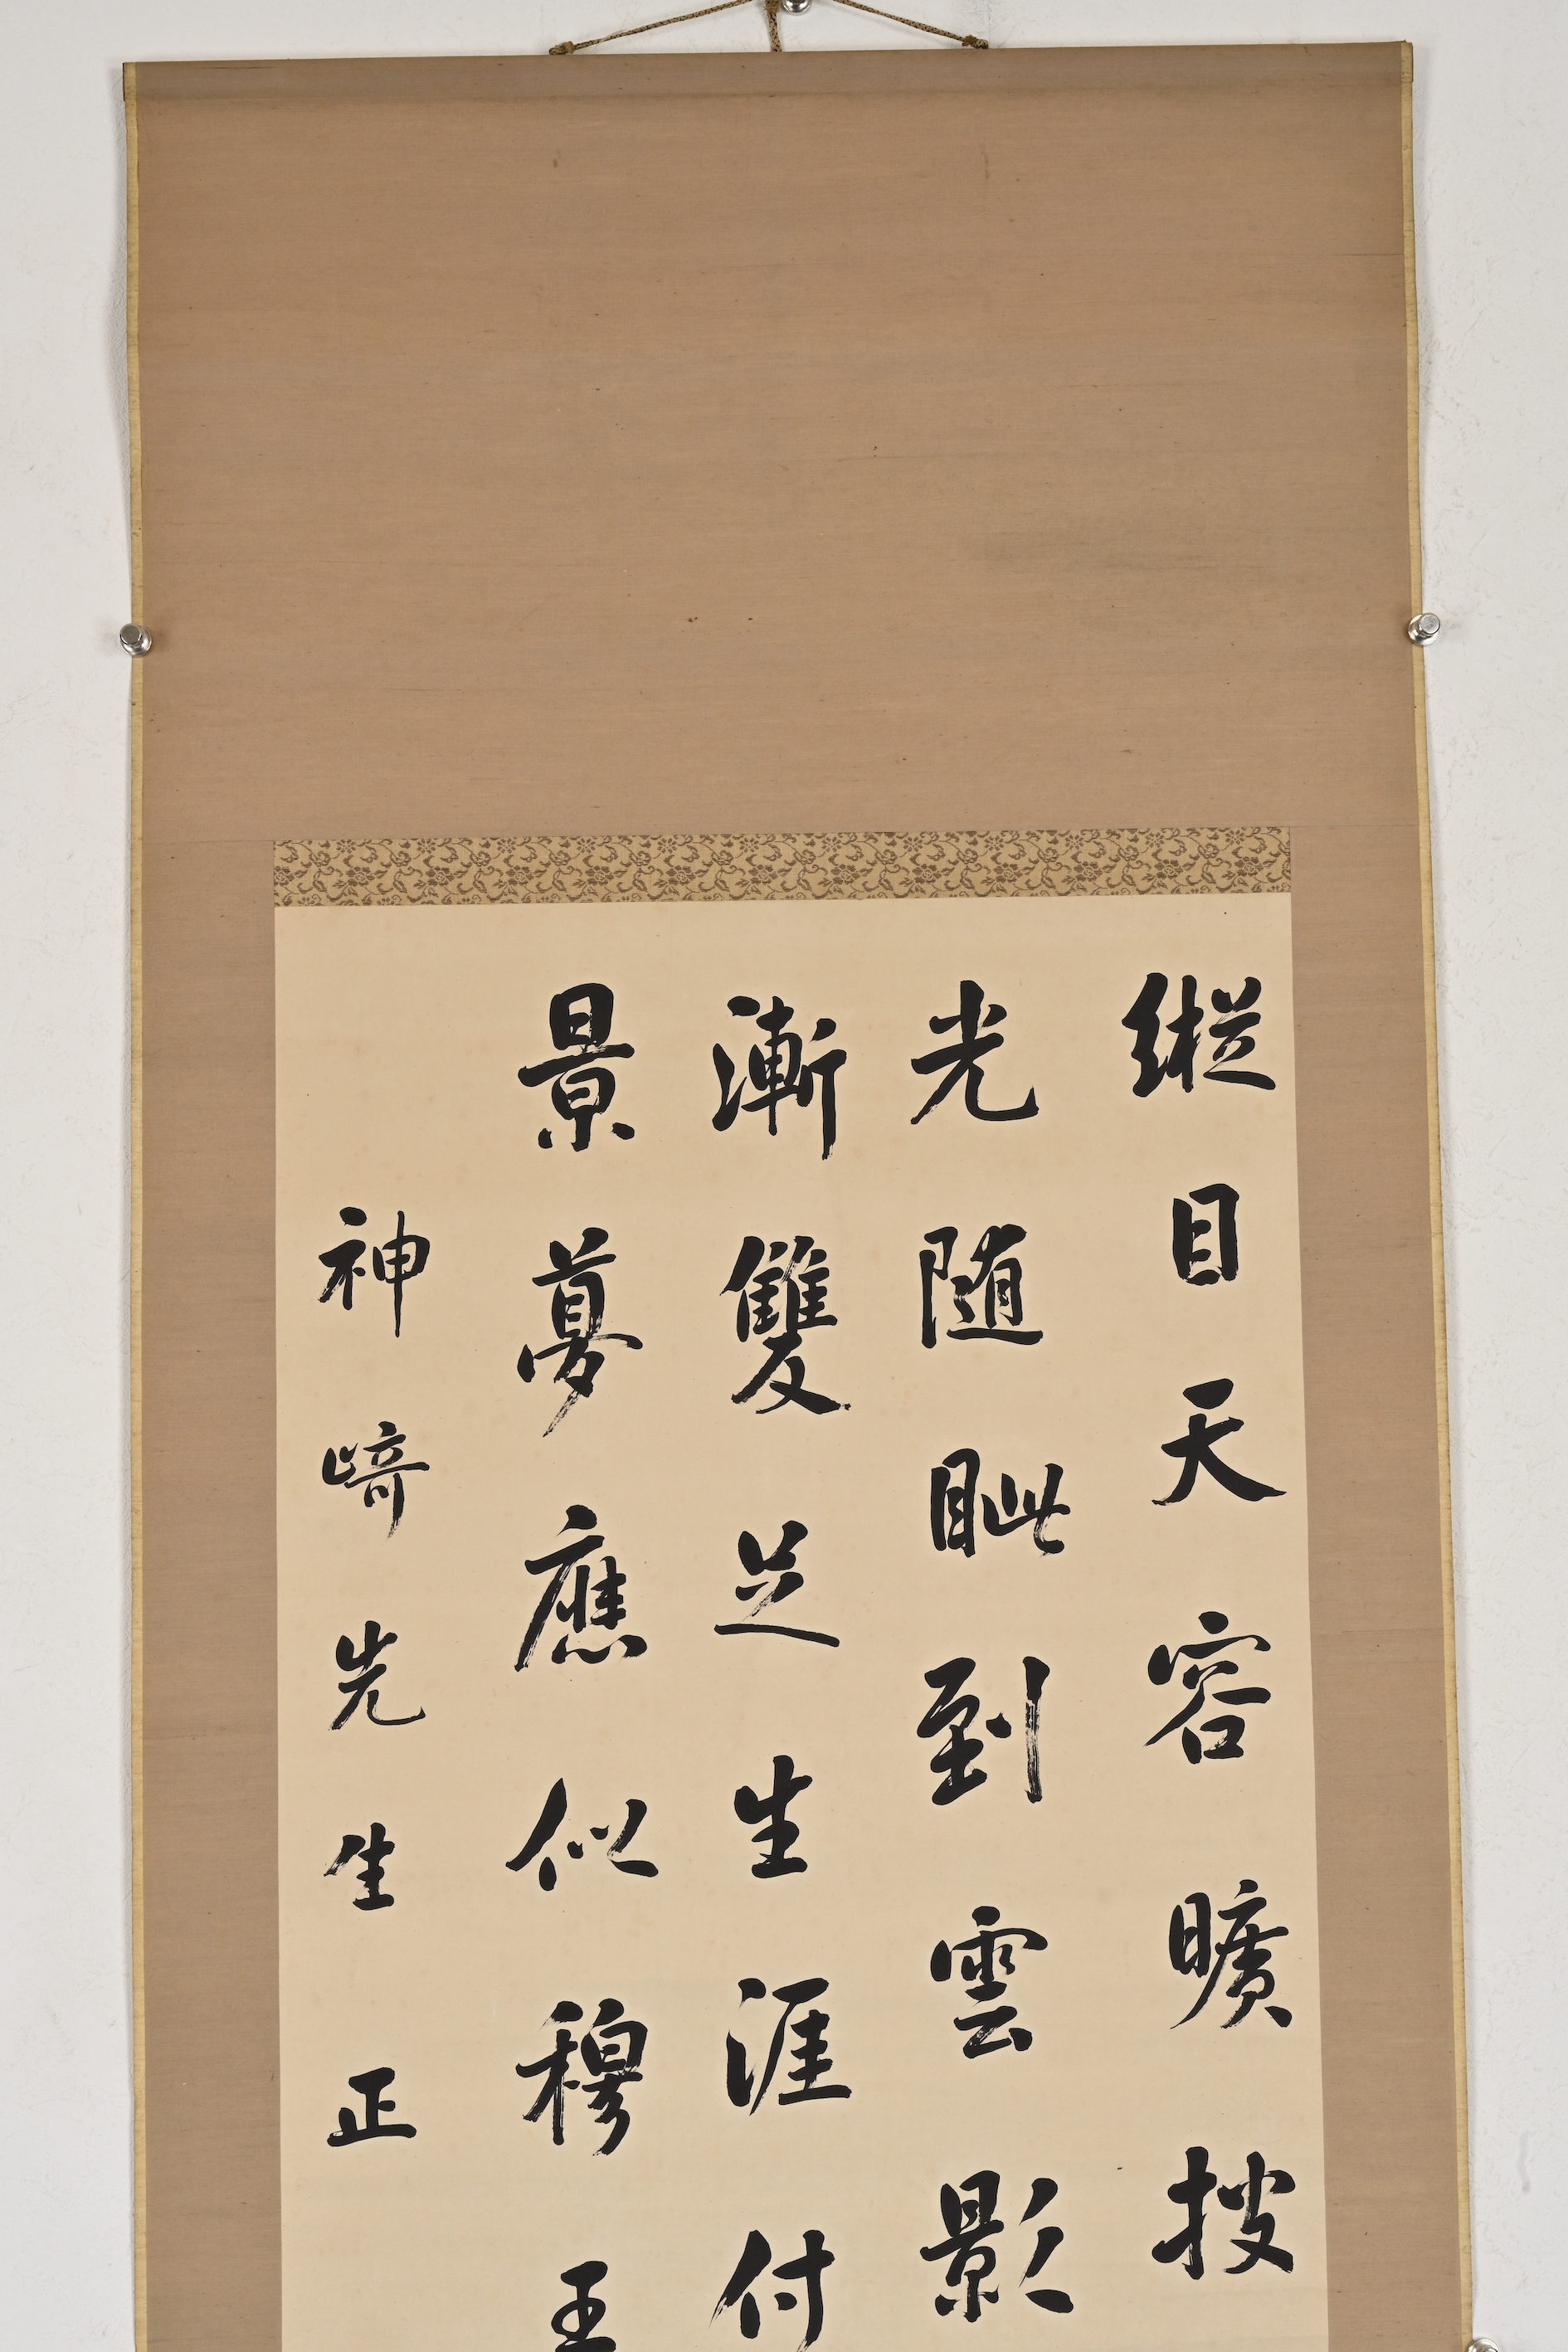 縱目天容曠披
光随眦到雲影
漸雙足生涯付
景夢應似穆王
神﨑先生正